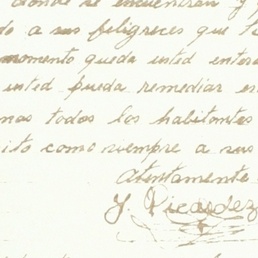 donde se encuentran y
do a sus feligreces que
momento queda usted entera
usted pueda remediar es
nas todos los habitantes
ito como siempre a sus
Atentamente
J. Vicardez